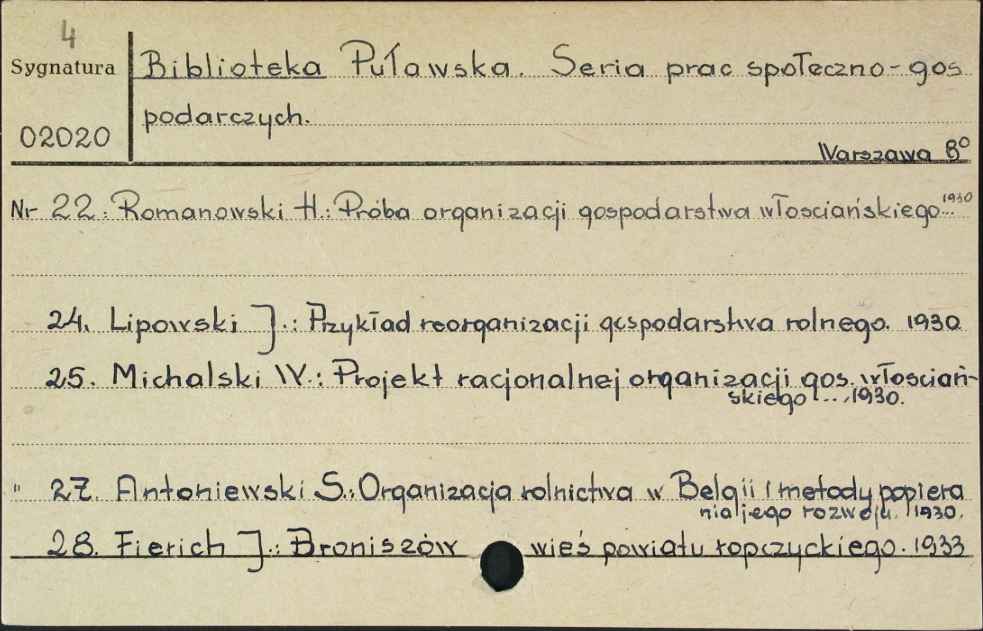 4
Sygnatura
02020
Biblioteka Puławska. Seria prac społeczno-gos
podarczych.
Warszawa 8°
Nr 22. Romanowski H.: Próba organizacji gospodarstwa włosciańskiego... 1930
24. Lipowski J.: Przykład reorganizacji gospodarstwa rolnego. 1930
25. Michalski W.: Projekt racjonalnej organizacji gos. włosciań-
skiego ..., 1930.
" 27. Antoniewski S.: Organizacja rolnictwa w Belgii i metody popiera
nia jego rozwoju. 1930.
28. Fierich J.: Broniszów wieś powiatu ropczyckiego. 1933